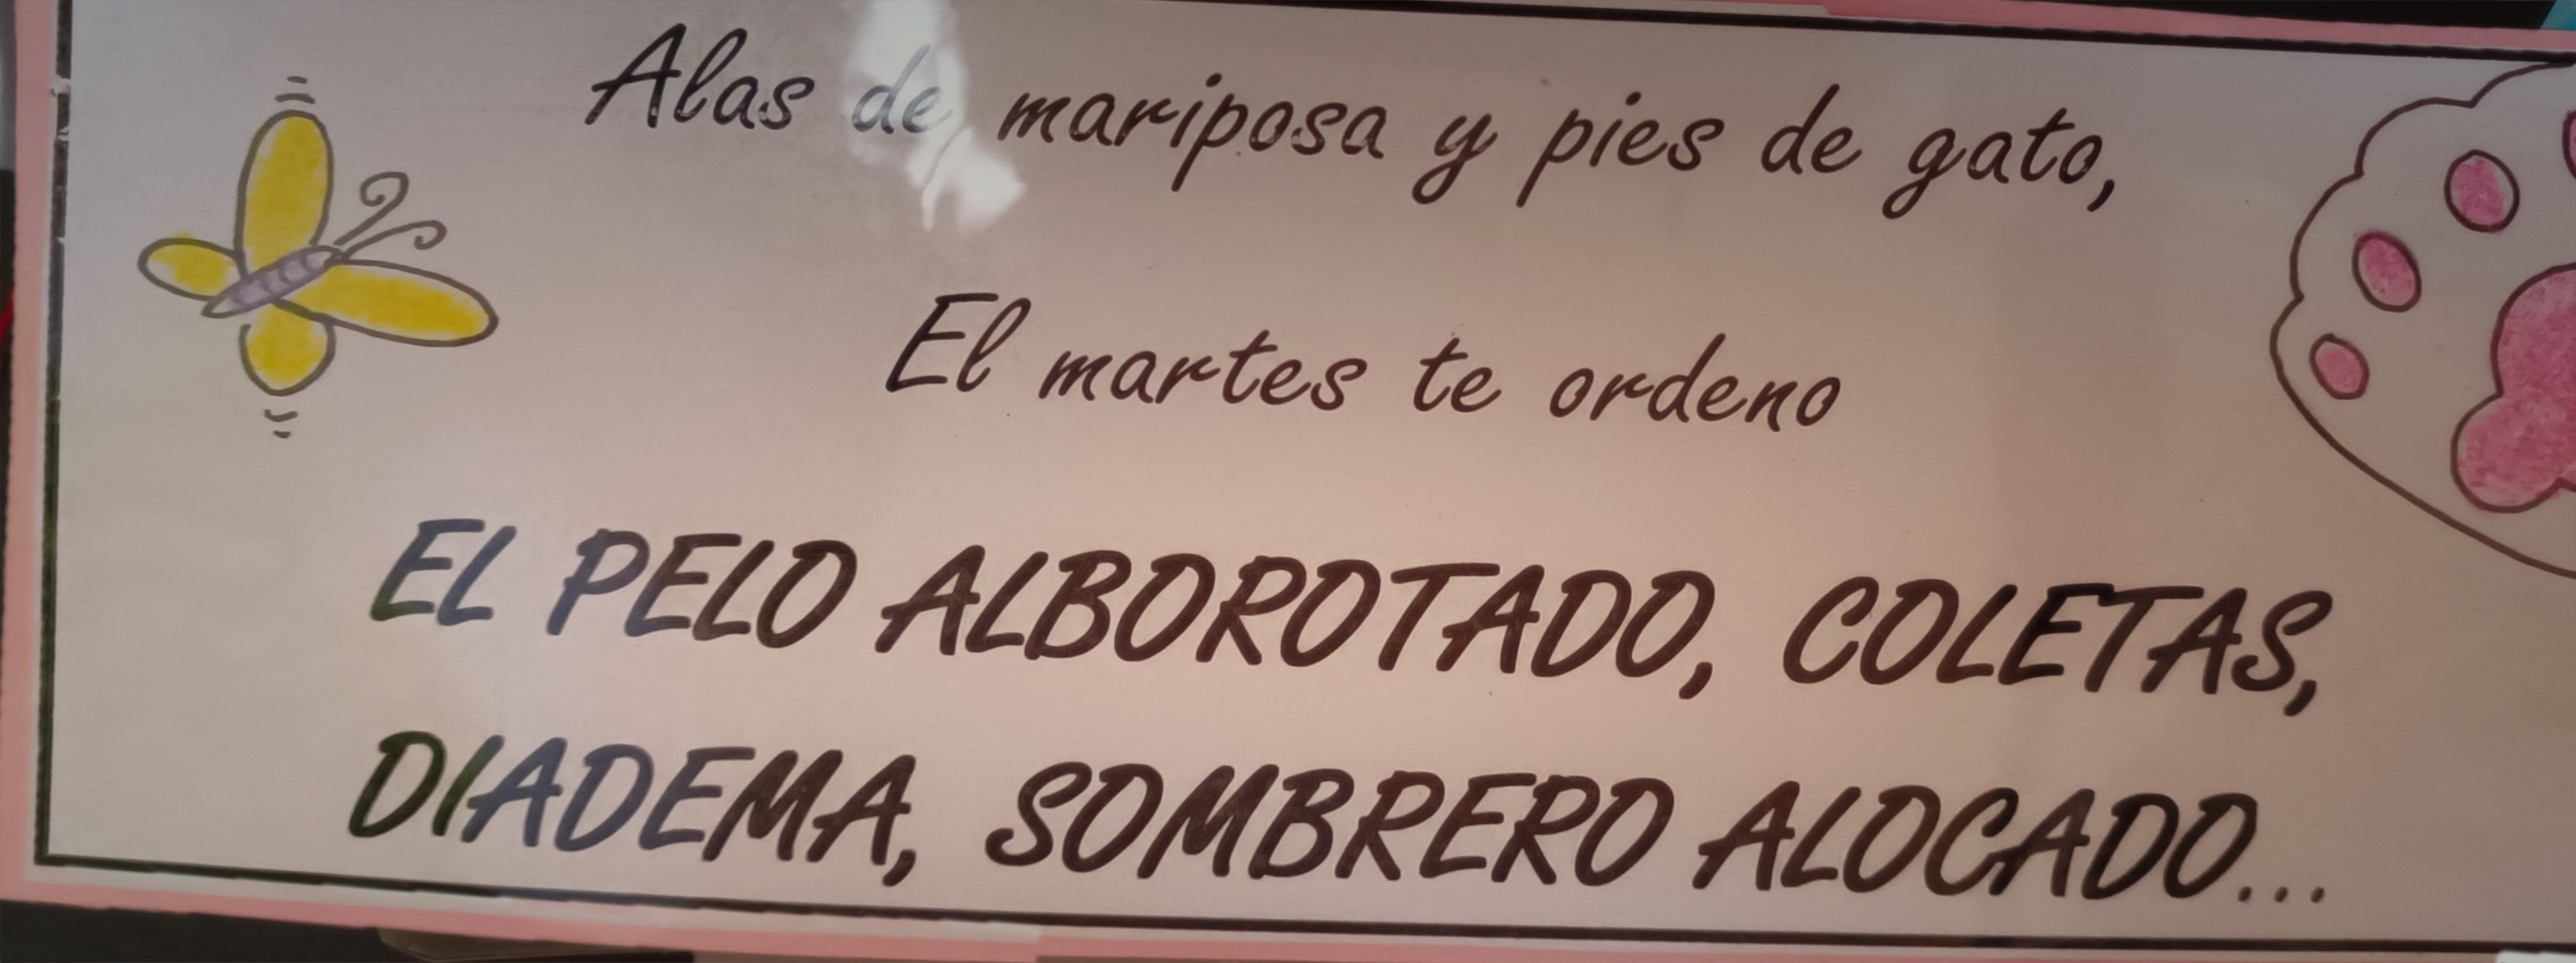 Alas de mariposa y pies de gato,
El martes te ordeno
EL PELO ALBOROTADO, COLETAS,
DIADEMA, SOMBRERO ALOCADO...